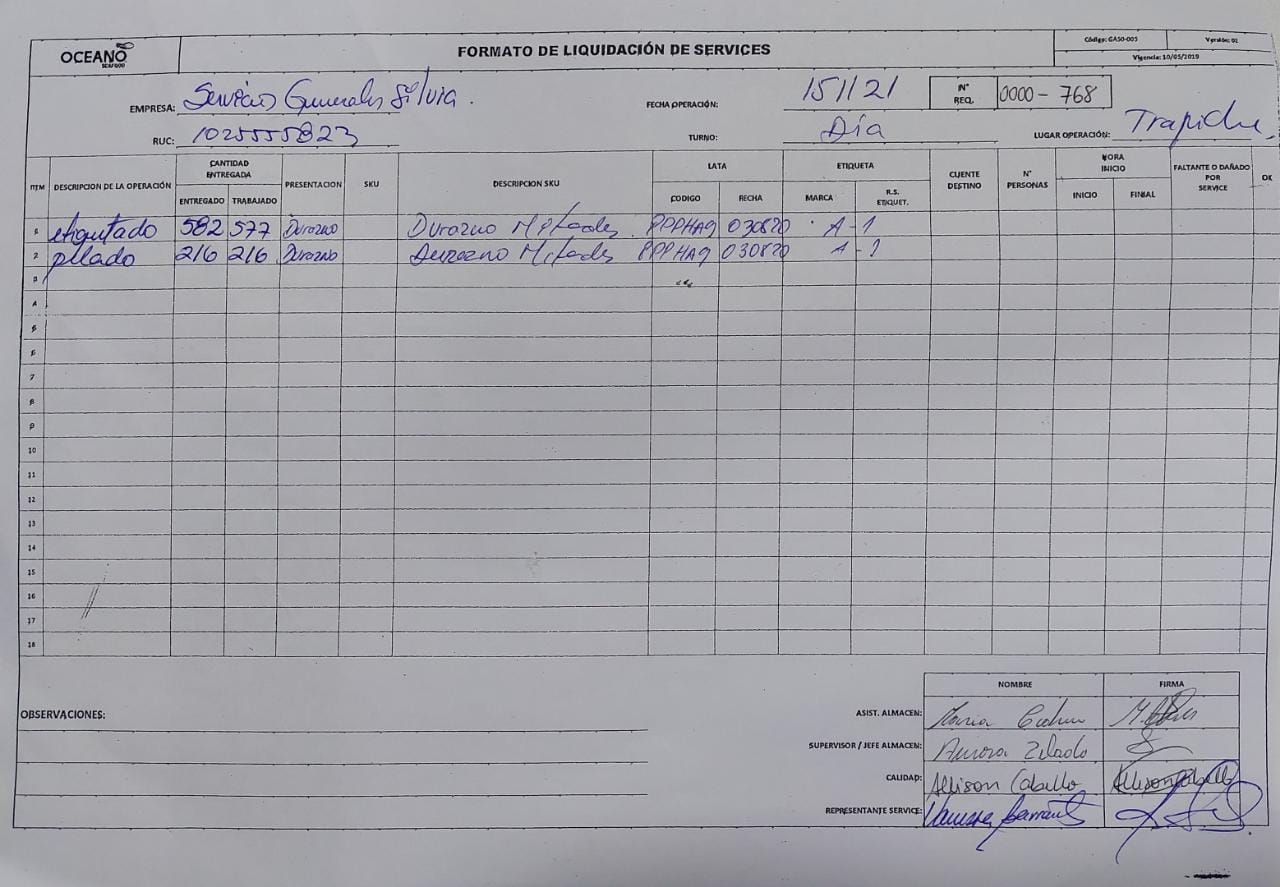 OCEANO SEAFOOD
FORMATO DE LIQUIDACIÓN DE SERVICES
Código: GA50-005 Versión: 01
Vigencia: 10/05/2019
EMPRESA: Servicios Generales Silvia.
FECHA OPERACIÓN: 15/1/21
N° REQ. 0000 - 768
RUC: 1025555823
TURNO: Día
LUGAR OPERACIÓN: Trapiche
ITEM DESCRIPCION DE LA OPERACIÓN CANTIDAD ENTREGADA PRESENTACION SKU DESCRIPCION SKU LATA ETIQUETA CLIENTE DESTINO N° PERSONAS HORA INICIO FALTANTE O DAÑADO POR SERVICE OK
ENTREGADO TRABAJADO CODIGO FECHA MARCA R.S. ETIQUET. INICIO FINIAL
1 etiquetado 582 577 Durazno Durazno Mitades PPPHA9 030820 A-1
2 pllado 216 216 Durazno Durazno Mitades PPPHA9 030820 A-1
3
4
5
6
7
8
9
10
11
12
13
14
15
16
17
18
NOMBRE FIRMA
OBSERVACIONES:
ASIST. ALMACEN: Maria
SUPERVISOR / JEFE ALMACEN: Aurora
CALIDAD: Allison Caballo Allison Caballo
REPRESENTANTE SERVICE: Vanessa